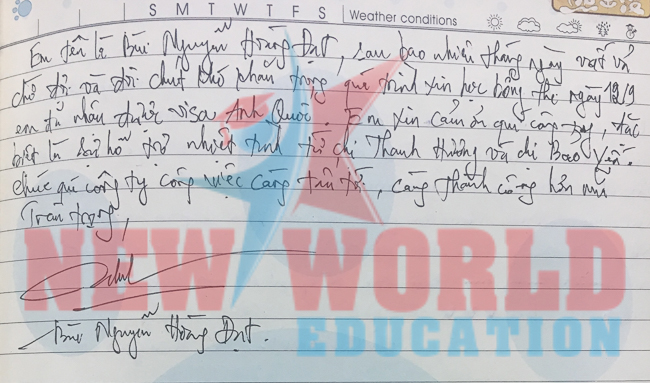 S M T W T F S Weather conditions
Em tên là Bùi Nguyễn Hoàng Đạt, sau bao nhiêu tháng ngày vất vả
chờ đợi và đôi chút khó khăn trong quá trình xin học bổng thì ngày 12/9
em đã nhận được visa Anh Quốc. Em xin cảm ơn quý công ty, đặc
biệt là sự hỗ trợ nhiệt tình từ chị Thanh Hương và chị Bảo Yến.
chúc quý công ty công việc càng tấn tới, càng thành công hơn nữa
Trân trọng,
NEW WORLD
EDUCATION
Bùi Nguyễn Hoàng Đạt.